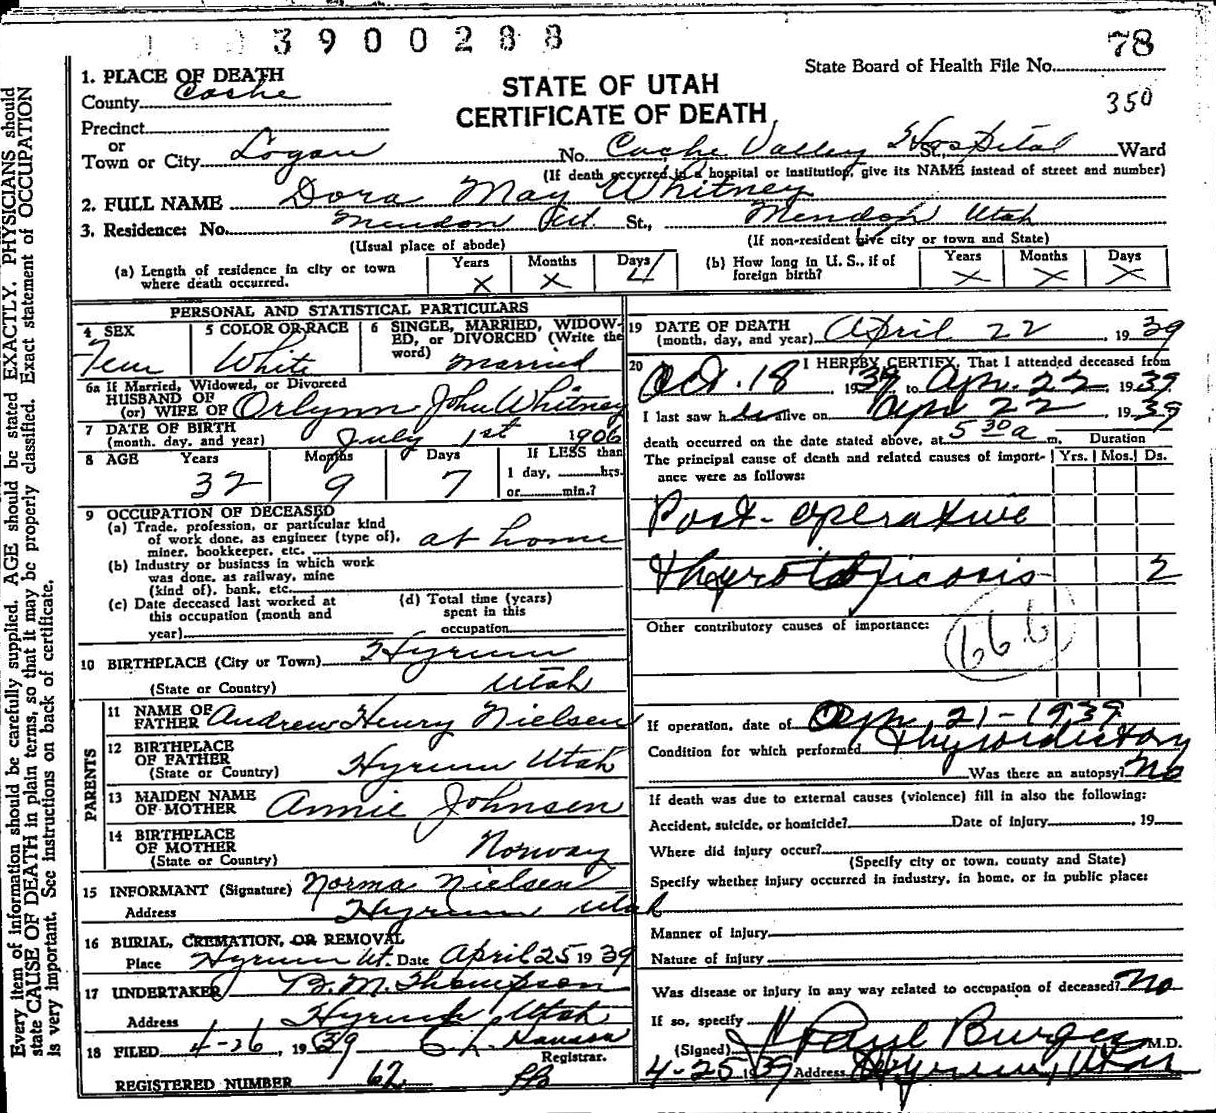 3900288
78
State Board of Health File No.
350
STATE OF UTAH
CERTIFICATE OF DEATH
1. PLACE OF DEATH
County Cache
Precinct
or
Town or City Logan No. Cache Valley Hospital St., Ward
(If death occurred in a hospital or institution, give its NAME instead of street and number)
2. FULL NAME Dora May Whitney
3. Residence: No. Mendon Ut. St., Mendon Utah
(Usual place of abode) (If non-resident give city or town and State)
(a) Length of residence in city or town where death occurred. Years X Months X Days 4 (b) How long in U. S., if of foreign birth? Years X Months X Days X
PERSONAL AND STATISTICAL PARTICULARS
4 SEX Fem 5 COLOR OR RACE White 6 SINGLE, MARRIED, WIDOWED, OR DIVORCED (Write the word) Married
6a If Married, Widowed, or Divorced
HUSBAND OF
(or) WIFE OF Orlynn John Whitney
7 DATE OF BIRTH
(month, day, and year) July 1st 1906
8 AGE Years 32 Months 9 Days 7 If LESS than 1 day, hrs. or min.?
9 OCCUPATION OF DECEASED
(a) Trade, profession, or particular kind
of work done, as engineer (type of),
miner, bookkeeper, etc. at home
(b) Industry or business in which work
was done, as railway, mine
(kind of), bank, etc.
(c) Date deceased last worked at
this occupation (month and
year)
(d) Total time (years)
spent in this
occupation
10 BIRTHPLACE (City or Town) Hyrum
(State or Country) Utah
PARENTS
11 NAME OF
FATHER Andrew Henry Nielsen
12 BIRTHPLACE
OF FATHER
(State or Country) Hyrum Utah
13 MAIDEN NAME
OF MOTHER Annie Johnsen
14 BIRTHPLACE
OF MOTHER
(State or Country) Norway
15 INFORMANT (Signature) Norma Nielsen
Address Hyrum Utah
16 BURIAL, CREMATION, OR REMOVAL
Place Hyrum Ut. Date April 25 1939
17 UNDERTAKER B. M. Thompson
Address Hyrum Utah
18 FILED 4-26, 1939 C. L. Hansen
Registrar.
REGISTERED NUMBER 62
19 DATE OF DEATH
(month, day, and year) April 22 1939
20 I HEREBY CERTIFY, That I attended deceased from
Oct. 18 1938 to Apr. 22, 1939
I last saw her alive on Apr 22, 1939
death occurred on the date stated above, at 5 30 a m. Duration
The principal cause of death and related causes of importance were as follows: Yrs. Mos. Ds.
Post-operative
thyrotoxicosis 2
Other contributory causes of importance:
66b
If operation, date of Apr 21-1939
Condition for which performed Thyroidectomy
Was there an autopsy? No
If death was due to external causes (violence) fill in also the following:
Accident, suicide, or homicide? Date of injury , 19
Where did injury occur?
(Specify city or town, county and State)
Specify whether injury occurred in industry, in home, or in public place:
Manner of injury
Nature of injury
Was disease or injury in any way related to occupation of deceased? No
If so, specify
(Signed) Paul Burgess M.D.
4-25 1939 Address Hyrum, Utah
Every item of information should be carefully supplied. AGE should be stated EXACTLY. PHYSICIANS should
state CAUSE OF DEATH in plain terms, so that it may be properly classified. Exact statement of OCCUPATION
is very important. See instructions on back of certificate.